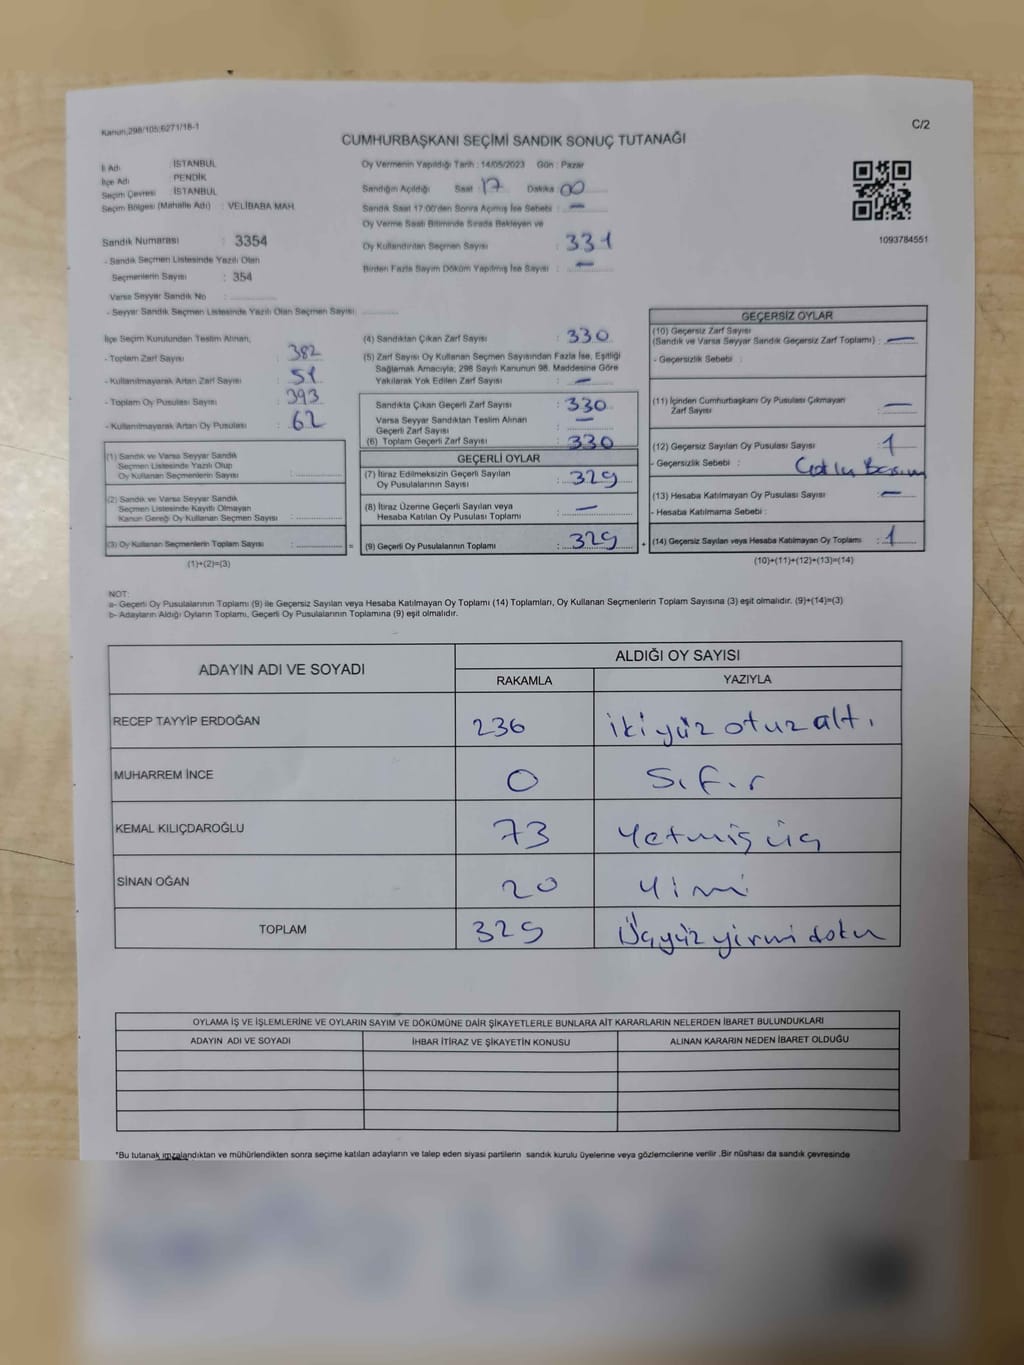 Kanun;298/105;6271/18-1
C/2
CUMHURBAŞKANI SEÇİMİ SANDIK SONUÇ TUTANAĞI
İl Adı : İSTANBUL
İlçe Adı : PENDİK
Seçim Çevresi : İSTANBUL
Seçim Bölgesi (Mahalle Adı) : VELİBABA MAH.
Sandık Numarası : 3354
- Sandık Seçmen Listesinde Yazılı Olan
Seçmenlerin Sayısı : 354
Varsa Seyyar Sandık No :
- Seyyar Sandık Seçmen Listesinde Yazılı Olan Seçmen Sayısı:
Oy Vermenin Yapıldığı Tarih : 14/05/2023 Gün : Pazar
Sandığın Açıldığı Saat : 17 Dakika : 00
Sandık Saat 17:00'den Sonra Açılmış İse Sebebi : —
Oy Verme Saati Bitiminde Sırada Bekleyen ve
Oy Kullandırılan Seçmen Sayısı : 331
Birden Fazla Sayım Döküm Yapılmış İse Sayısı : —
1093784551
İlçe Seçim Kurulundan Teslim Alınan,
- Toplam Zarf Sayısı : 382
- Kullanılmayarak Artan Zarf Sayısı : 51
- Toplam Oy Pusulası Sayısı : 393
- Kullanılmayarak Artan Oy Pusulası : 62
(1) Sandık ve Varsa Seyyar Sandık
Seçmen Listesinde Yazılı Olup
Oy Kullanan Seçmenlerin Sayısı :
(2) Sandık ve Varsa Seyyar Sandık
Seçmen Listesinde Kayıtlı Olmayan
Kanun Gereği Oy Kullanan Seçmen Sayısı :
(3) Oy Kullanan Seçmenlerin Toplam Sayısı : =
(1)+(2)=(3)
(4) Sandıktan Çıkan Zarf Sayısı : 330
(5) Zarf Sayısı Oy Kullanan Seçmen Sayısından Fazla İse, Eşitliği
Sağlamak Amacıyla; 298 Sayılı Kanunun 98. Maddesine Göre
Yakılarak Yok Edilen Zarf Sayısı : —
Sandıkta Çıkan Geçerli Zarf Sayısı : 330
Varsa Seyyar Sandıktan Teslim Alınan
Geçerli Zarf Sayısı : —
(6) Toplam Geçerli Zarf Sayısı : 330
GEÇERLİ OYLAR
(7) İtiraz Edilmeksizin Geçerli Sayılan
Oy Pusulalarının Sayısı : 329
(8) İtiraz Üzerine Geçerli Sayılan veya
Hesaba Katılan Oy Pusulası Toplamı : —
(9) Geçerli Oy Pusulalarının Toplamı : 329 +
GEÇERSİZ OYLAR
(10) Geçersiz Zarf Sayısı
(Sandık ve Varsa Seyyar Sandık Geçersiz Zarf Toplamı) : —
- Geçersizlik Sebebi :
(11) İçinden Cumhurbaşkanı Oy Pusulası Çıkmayan
Zarf Sayısı : —
(12) Geçersiz Sayılan Oy Pusulası Sayısı : 1
- Geçersizlik Sebebi :
(13) Hesaba Katılmayan Oy Pusulası Sayısı : —
- Hesaba Katılmama Sebebi :
(14) Geçersiz Sayılan veya Hesaba Katılmayan Oy Toplamı : 1
(10)+(11)+(12)+(13)=(14)
NOT:
a- Geçerli Oy Pusulalarının Toplamı (9) ile Geçersiz Sayılan veya Hesaba Katılmayan Oy Toplamı (14) Toplamları, Oy Kullanan Seçmenlerin Toplam Sayısına (3) eşit olmalıdır. (9)+(14)=(3)
b- Adayların Aldığı Oyların Toplamı, Geçerli Oy Pusulalarının Toplamına (9) eşit olmalıdır.
ADAYIN ADI VE SOYADI
ALDIĞI OY SAYISI
RAKAMLA YAZIYLA
RECEP TAYYİP ERDOĞAN 236 ikiyüz otuz altı
MUHARREM İNCE 0 Sıfır
KEMAL KILIÇDAROĞLU 73 Yetmiş üç
SİNAN OĞAN 20 Yimi
TOPLAM 329 Üçyüz yirmi doku
OYLAMA İŞ VE İŞLEMLERİNE VE OYLARIN SAYIM VE DÖKÜMÜNE DAİR ŞİKAYETLERLE BUNLARA AİT KARARLARIN NELERDEN İBARET BULUNDUKLARI
ADAYIN ADI VE SOYADI İHBAR İTİRAZ VE ŞİKAYETİN KONUSU ALINAN KARARIN NEDEN İBARET OLDUĞU
*Bu tutanak imzalandıktan ve mühürlendikten sonra seçime katılan adayların ve talep eden siyasi partilerin sandık kurulu üyelerine veya gözlemcilerine verilir .Bir nüshası da sandık çevresinde